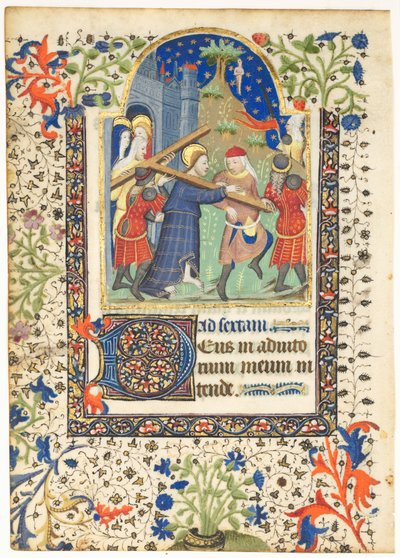 Ad sextam
DEus in adiuto
rium meum in
tende.